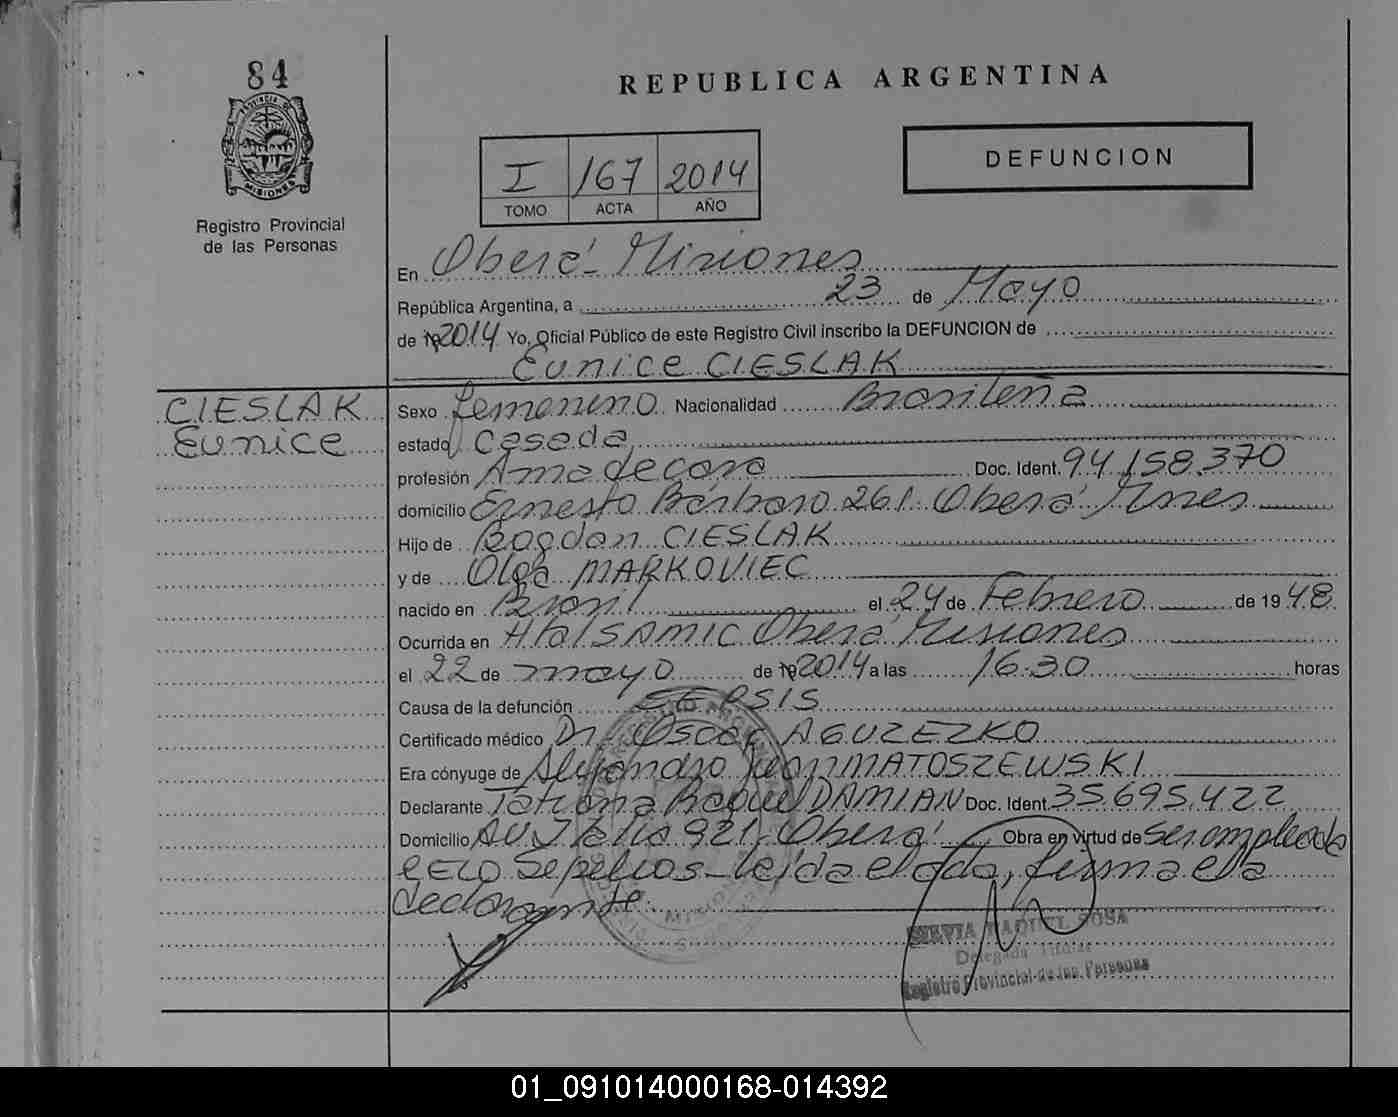 84
PROVINCIA DE
MISIONES
Registro Provincial
de las Personas
REPUBLICA ARGENTINA
I 167 2014
TOMO ACTA AÑO
DEFUNCION
En Oberá - Misiones
República Argentina, a 23 de Mayo
de 19 2014 Yo, Oficial Público de este Registro Civil inscribo la DEFUNCION de
Eunice CIESLAK
CIESLAK
Eunice
Sexo femenino Nacionalidad Brasileña
estado casada
profesión Ama de casa Doc. Ident. 94.158.370
domicilio Ernesto Bárbaro 261. Oberá Mnes
Hijo de Bogdan CIESLAK
y de Olga MARKOVIEC
nacido en Brasil el 24 de Febrero de 19 48
Ocurrida en Htal SAMIC Oberá Misiones
el 22 de mayo de 19 2014 a las 16.30 horas
Causa de la defunción SEPSIS
Certificado médico Dr. Oscar AGUZEZKO
Era cónyuge de Alejandro Juan MATOSZEWSKI
Declarante Tatiana Raquel DAMIAN Doc. Ident. 35.695.422
Domicilio AV. Italia 921. Oberá Obra en virtud de ser empleada
CELO Sepelios - leída el acta, firma el la
declarante.
SILVIA RAQUEL SOSA
Delegada Titular
Registro Provincial de las Personas
01_091014000168-014392